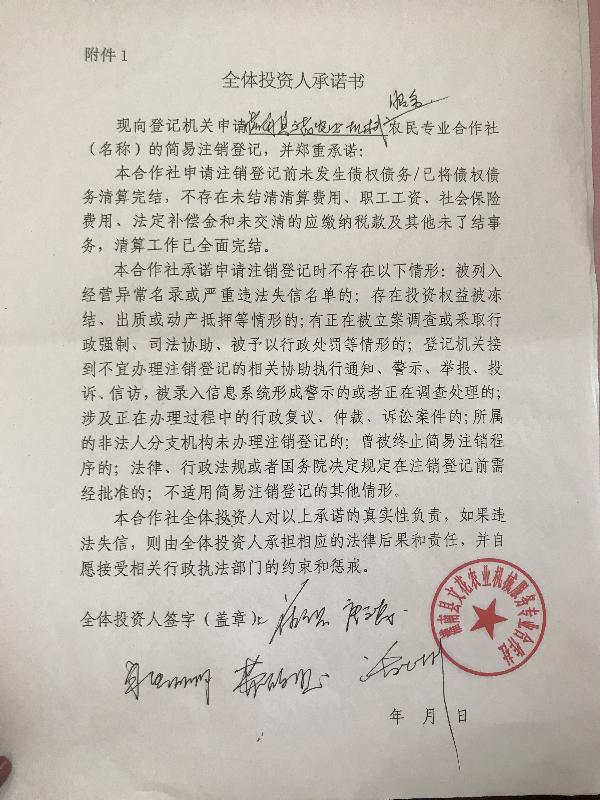 附件1
全体投资人承诺书
服务
现向登记机关申请 农民专业合作社
（名称）的简易注销登记，并郑重承诺：
本合作社申请注销登记前未发生债权债务/已将债权债
务清算完结，不存在未结清清算费用、职工工资、社会保险
费用、法定补偿金和未交清的应缴纳税款及其他未了结事
务，清算工作已全面完结。
本合作社承诺申请注销登记时不存在以下情形：被列入
经营异常名录或严重违法失信名单的；存在投资权益被冻
结、出质或动产抵押等情形的；有正在被立案调查或采取行
政强制、司法协助、被予以行政处罚等情形的；登记机关接
到不宜办理注销登记的相关协助执行通知、警示、举报、投
诉、信访，被录入信息系统形成警示的或者正在调查处理的；
涉及正在办理过程中的行政复议、仲裁、诉讼案件的；所属
的非法人分支机构未办理注销登记的；曾被终止简易注销程
序的；法律、行政法规或者国务院决定规定在注销登记前需
经批准的；不适用简易注销登记的其他情形。
本合作社全体投资人对以上承诺的真实性负责，如果违
法失信，则由全体投资人承担相应的法律后果和责任，并自
愿接受相关行政执法部门的约束和惩戒。
全体投资人签字（盖章）：
灌南县文花农业机械服务专业合作社
年 月 日